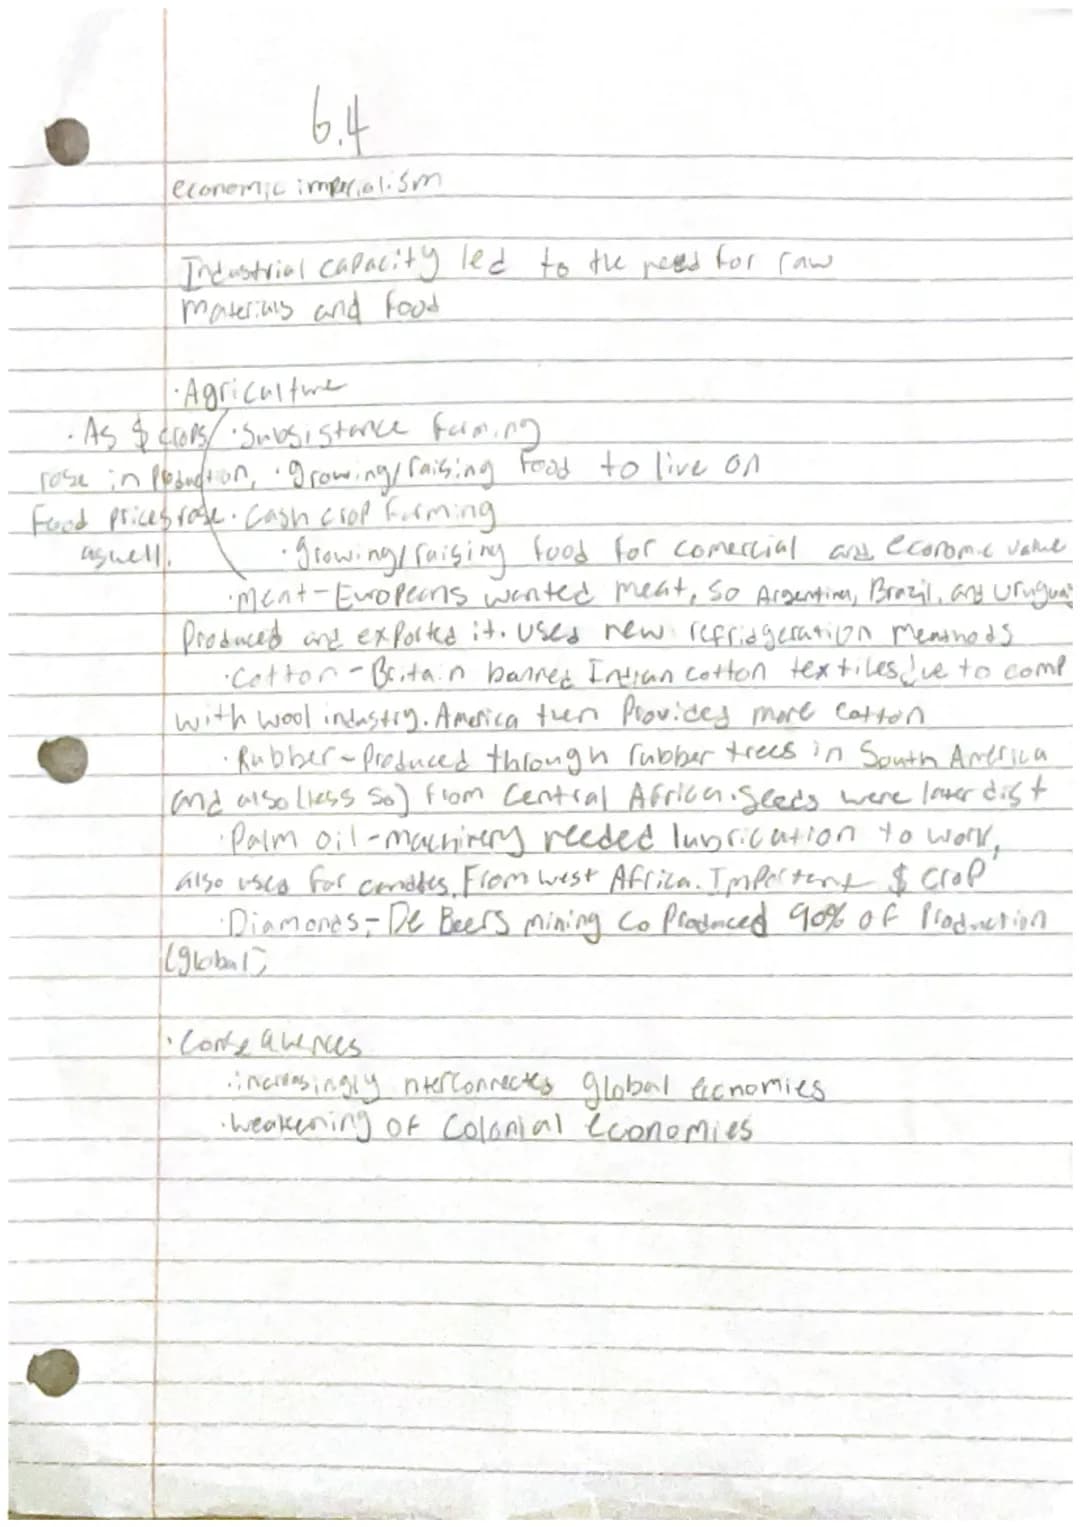 6.4
economic imperialism
Industrial capacity led to the need for raw
materials and food
· Agriculture
· As $ crops
rose in production,
Food prices rose
as well.
· Subsistance farming
· growing/raising food to live on
· Cash crop farming
· growing/raising food for comercial and economic value
· Meat - Europeans wanted meat, so Argentina, Brazil, and Uruguay
Produced and exported it. Used new refridgeration menthods
· Cotton - Britain banned Indian cotton textiles due to comp
with wool industry. America then Provided more cotton
· Rubber - Produced through rubber trees in South America
and also (less so) from Central Africa. Seeds were later dist
· Palm oil - machinery needed lubrication to work,
also used for candles. From west Africa. Important $ crop
· Diamonds - De Beers mining Co Produced 90% of Production
(global)
· Consequences
· increasingly nterconnected global ecnomies
· weakening of Colonial economies